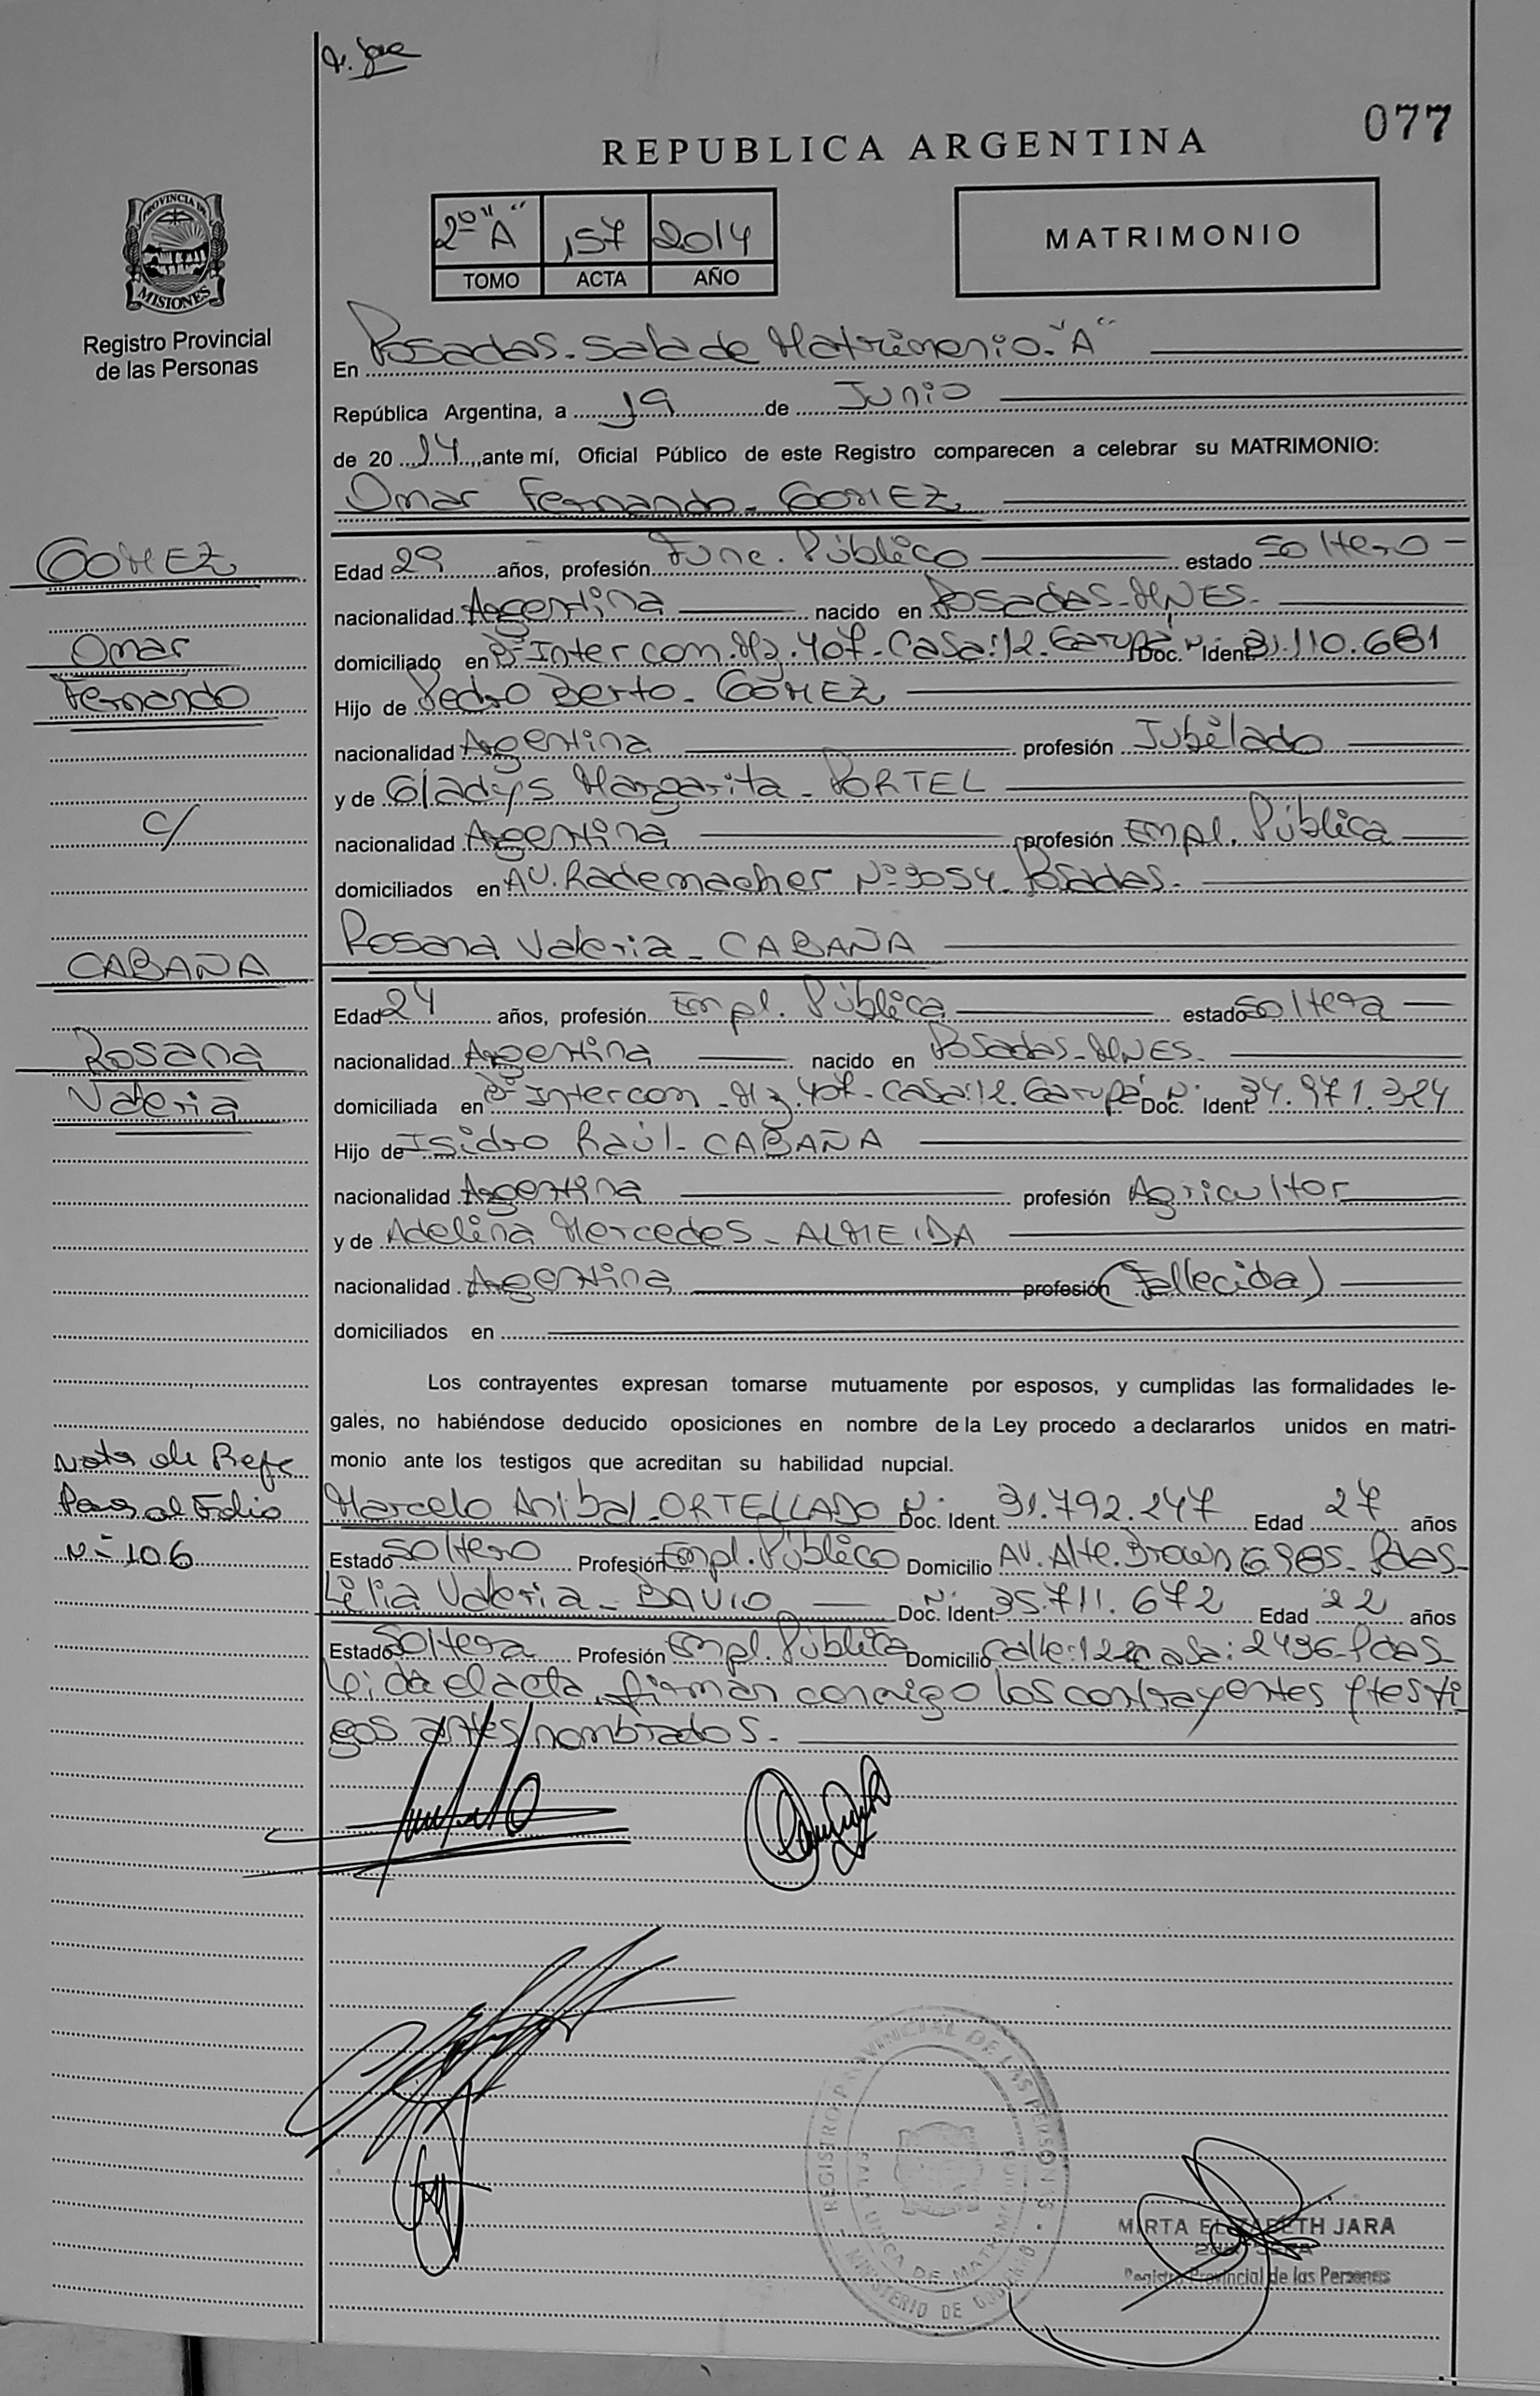 077
REPUBLICA ARGENTINA
PROVINCIA DE
MISIONES
Registro Provincial
de las Personas
2º "A" 157 2014
TOMO ACTA AÑO
MATRIMONIO
En Posadas - Sala de Matrimonio - "A"
República Argentina, a 19 de Junio
de 2014, ante mí, Oficial Público de este Registro comparecen a celebrar su MATRIMONIO:
Omar Fernando - GOMEZ
GOMEZ
Omar
Fernando
c/
CABAÑA
Rosana
Valeria
Edad 29 años, profesión Func. Público estado Soltero -
nacionalidad Argentina nacido en Posadas - MNES.
domiciliado en Bº Intercon. Mz. 407 - Casa: 12. Garupá Doc. Nº Ident. 31.110.681
Hijo de Pedro Berto - GÓMEZ
nacionalidad Argentina profesión Jubilado
y de Gladys Margarita - PORTEL
nacionalidad Argentina profesión Empl. Pública
domiciliados en AV. Rademacher Nº 3054 - Posadas.
Rosana Valeria - CABAÑA
Edad 24 años, profesión Empl. Pública estado Soltera
nacionalidad Argentina nacido en Posadas - MNES.
domiciliada en Bº Intercon - Mz. 407 - Casa: 12. Garupá Doc. Nº Ident. 34.971.324
Hijo de Isidro Raúl - CABAÑA
nacionalidad Argentina profesión Agricultor
y de Adelina Mercedes - ALMEIDA
nacionalidad Argentina profesión (Fallecida)
domiciliados en
Los contrayentes expresan tomarse mutuamente por esposos, y cumplidas las formalidades le-
gales, no habiéndose deducido oposiciones en nombre de la Ley procedo a declararlos unidos en matri-
monio ante los testigos que acreditan su habilidad nupcial.
Nota de Refe
Pasa al Folio
Nº 106
Marcelo Anibal - ORTELLADO Nº Doc. Ident. 31.792.247 Edad 27 años
Estado Soltero Profesión Empl. Público Domicilio AV. Alte. Brown 6985 - Pdas -
Lilia Valeria - BAVIO Nº Doc. Ident. 35.711.672 Edad 22 años
Estado Soltera Profesión Empl. Pública Domicilio Calle: 122 casa: 2496 - Pdas -
Leida el acta, firman conmigo los contrayentes y testi
gos antes nombrados.
REGISTRO PROVINCIAL DE LAS PERSONAS
MINISTERIO DE GOBIERNO
MIRTA ELIZABETH JARA
Registro Provincial de las Personas